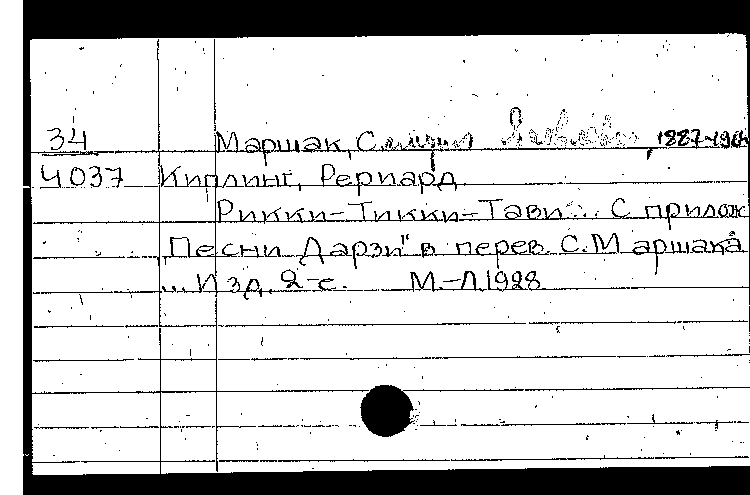 34
Маршак, Самуил Яковлевич 1887-196
4037 Киплинг, Рериард
Рикки-Тикки-Тави... С прилож
„Песни Дарзи" в перев. С. Маршака
... Изд. 2-е. М.-Л. 1928